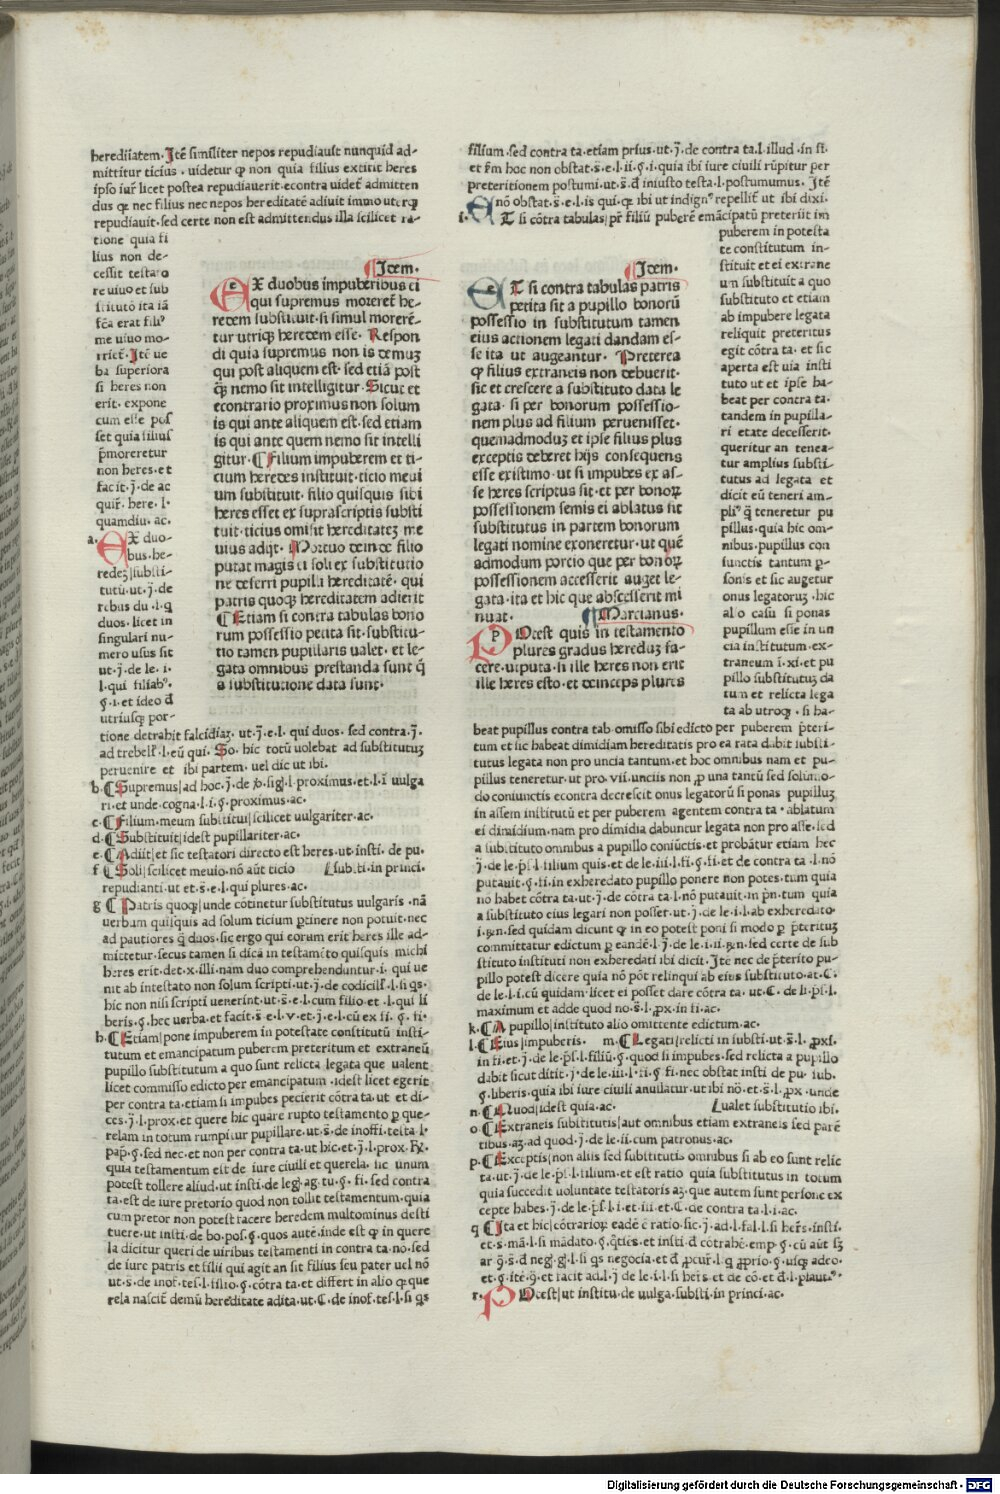 hereditatem. Itē similiter nepos repudiauit nunquid ad-
mittitur ticius. uidetur ꝙ non quia filius extitit heres
ipso iur̄ licet postea repudiauerit. econtra uidet᷑ admitten
dus ꝙ nec filius nec nepos hereditatē adiuit immo uterqꝫ
repudiauit. sed certe non est admittendus illa scilicet ra-
tione quia fi
lius non de-
cessit testato
re uiuo et sub
stituto ita iā
me uiuo mo-
ba superiora
si heres non
erit. expone
cum esse pos
set quia filius
p̄moreretur
non heres. et
facit. j̄. de ac
quir̄. here. l.
quamdiu. ac.
a. EX duo-
bus. he-
redeꝫ|substi-
tutū. ut. j̄. de
rebus du. l. q
duos. licet in
singulari nu-
mero usus sit
ut. j̄. de le. i.
l. qui filiab᷒.
§. i. et ideo d̄
utriusqꝫ por-
tione detrahit falcidiaꝫ. ut. j̄. e. l. qui duos. sed contra. j̄.
ad trebell̄. l. eū qui. So. hic totū uolebat ad substitutuꝫ
peruenire et ibi partem. uel dic ut ibi.
b. ¶ Supremus|ad hoc. j̄. de ꝟ. siḡ. l. proximus. et. l. ī uulga
ri. et unde cogna. l. i. §. proximus. ac.
c. ¶ Filium. meum substitui|scilicet uulgariter. ac.
d. ¶ Substituit|idest pupillariter. ac.
e. ¶ Adijt|et sic testatori directo est heres. ut. insti. de pu.
f ¶ Soli|scilicet meuio. nō aūt ticio [substi. in princi.
repudianti. ut et. s̄. e. l. qui plures. ac.
g ¶ Patris quoqꝫ|unde cōtinetur substitutus uulgaris. nā
uerbum quisquis ad solum ticium ꝑtinere non potuit. nec
ad pautiores q̄ duos. sic ergo qui eorum erit heres ille ad-
mittetur. secus tamen si dica in testamēto quisquis michi
heres erit. det. x. illi. nam duo comprehenduntur. i. qui ue
nit ab intestato non solum scripti. ut. j̄. de codicill̄. l. si qs.
hic non nisi scripti uenerint. ut. s̄. e. l. cum filio et. l. qui li
beris. §. hec uerba. et facit. s̄. e. l. v. et. j̄. e. l. cū ex fi. §. fi.
h. ¶ Etiam|pone impuberem in potestate constitutū insti-
tutum et emancipatum puberem preteritum et extraneū
pupillo substitutum a quo sunt relicta legata que ualent
licet commisso edicto per emancipatum. idest licet egerit
per contra ta. etiam si impubes pecierit cōtra ta. ut et di-
ces. j̄. l. prox. et quere hic quare rupto testamento ꝑ que-
relam in totum rumpitur pupillare. ut. s̄. de inoffi. testa. l.
pap̄. §. sed nec. et non per contra ta. ut hic. et. j̄. l. prox. R̄.
quia testamentum est de iure ciuili et querela. sic unum
potest tollere aliud. ut insti. de leḡ. ag. tu. §. fi. sed contra
ta. est de iure pretorio quod non tollit testamentum. quia
cum pretor non potest facere heredem multominus desti
tuere. ut insti. de bo. pos. §. quos autē. inde est ꝙ in quere
la dicitur queri de uiribus testamenti in contra ta. no. sed
de iure patris et filii qui agit an sit filius seu pater uel nō
ut. s̄. de inof̄. tes. l. filio. §. cōtra ta. et differt in alio ꝙ que
rela nascit᷑ demū hereditate adita. ut. C. de inof̄. tes. l. si qs
¶ Item.
EX duobus impuberibus ei
qui supremus moreret᷑ he-
redem substituit. si simul morerē-
tur utriqꝫ heredem esse. Respon
di quia supremus non is demuꝫ
qui post aliquem est. sed etiā post
quē nemo sit intelligitur. Sicut et
econtrario proximus non solum
is qui ante aliquem est. sed etiam
is qui ante quem nemo sit intelli
gitur. ¶ Filium impuberem et ti-
cium heredes instituit. ticio meui
um substituit. filio quisquis sibi
heres esset ex suprascriptis substi
tuit. ticius omisit hereditatez me
uius adijt. Mortuo deinde filio
putat magis ei soli ex substitutio
ne deferri pupilli hereditatē. qui
patris quoqꝫ hereditatem adierit
¶ Etiam si contra tabulas bono
rum possessio petita sit. substitu-
tio tamen pupillaris ualet. et le-
gata omnibus prestanda sunt q̄
a substitutione data sunt.
filium. sed contra ta. etiam prius. ut. j̄. de contra ta. l. illud. in fi.
et s̄m hoc non obstat. s̄. e. l. ii. §. i. quia ibi iure ciuili rūpitur per
preteritionem postumi. ut. s̄. d̄ iniusto testa. l. postumumus. Itē
nō obstat. s̄. e. l. is qui. ꝙ ibi ut indign᷒ repellit᷑ ut ibi dixi.
i. ET si cōtra tabulas|pr̄ filiū puberē emācipatū preteriit im
puberem in potesta
te constitutum in-
stituit et ei extrane
um substituit a quo
substituto et etiam
ab impubere legata
reliquit preteritus
egit cōtra ta. et sic
aperta est uia insti
tuto ut et ipse ha-
beat per contra ta.
tandem in pupilla-
ri etate decesserit.
queritur an tenea-
tur amplius substi-
tutus ad legata et
dicit eū teneri am-
pli᷒ q̄ teneretur pu
pillus. quia hic om-
nibus. pupillus con
iunctis tantum ꝑ-
sonis et sic augetur
onus legatoruꝫ. hic
al. o casu si ponas
pupillum esse in un
cia institutum. ex-
traneum ī. xi. et pu
pillo substitutuꝫ da
tum et relicta lega
ta ab utroqꝫ. si ha-
beat pupillus contra tab. omisso sibi edicto per puberem p̄teri-
tum et sic habeat dimidiam hereditatis pro ea rata dabit substi-
tutus legata non pro uncia tantum. et hoc omnibus nam et pu-
pillus teneretur. ut pro. vii. unciis non ꝓ una tantū sed solūmo-
do coniunctis econtra decrescit onus legatorū si ponas pupilluꝫ
in assem institutū et per puberem agentem contra ta. ablatum
ei dimidium. nam pro dimidia dabuntur legata non pro asse. sed
a substituto omnibus a pupillo coniūctis. et probātur etiam hec
j̄. de le. p̄s. l. filium quis. et de le. iii. l. fi. §. fi. et de contra ta. l. nō
putauit. §. fi. in exheredato pupillo ponere non potes. tum quia
nō habet cōtra ta. ut. j̄. de cōtra ta. l. nō putauit. in pn̄. tum quia
a substituto eius legari non posset. ut. j̄. de le. i. l. ab exheredato
committatur edictum ꝑ eandē. l. j̄. de le. i. ii. rn̄. sed certe de sub
stituto instituti non exheredati ibi dicit. Itē nec de p̄terito pu-
pillo potest dicere quia nō pōt relinqui ab eius substituto. at. C.
de le. l. i. cū quidam. licet ei posset dare cōtra ta. ut. C. de li. p̄s. l.
maximum et adde quod no. s̄. l. ꝓx. in fi. ac.
k. ¶ A pupillo|instituto alio omittente edictum. ac.
l. ¶ Eius|impuberis. m. ¶ Legati|relicti in substi. ut. s̄. l. ꝓxi.
in fi. et. j̄. de le. p̄s. l. filiū. §. quod si impubes. sed relicta a pupillo
dabit sicut ditit. j̄. de le. iii. l. fi. §. fi. nec obstat insti de pu. sub.
§. liberis. quia ibi iure ciuili anullatur. ut ibi nō. et. s̄. l. ꝓx. unde
n. ¶ Quod|idest quia. ac. [ualet substitutio ibi.
o ¶ Extraneis substitutis|aut omnibus etiam extraneis sed parē
tibus. aꝫ. ad quod. j̄. de le. ii. cum patronus. ac.
p. ¶ Exceptis|non aliis sed substitutis omnibus si ab eo sunt relic
ta. ut. j̄. de le. p̄s. l. filium. et est ratio quia substitutus in totum
quia succedit uoluntate testatoris aꝫ. que autem sunt persone ex
cepte habes. j̄. de le. p̄s. l. i. et iii. et. C. de contra ta. l. i. ac.
q ¶ Ita et hic|cōtrariorꝫ eadē ē ratio. sic. j̄. ad. l. fal. l. si heres. insti.
r. POtest|ut institu. de uulga. substi. in princi. ac.
¶ Item.
ET si contra tabulas patris
petita sit a pupillo bonorū
possessio in substitutum tamen
eius actionem legati dandam es-
se ita ut augeantur. Preterea
ꝙ filius extraneis non debuerit.
sic et crescere a substituto data le
gata. si per bonorum possessio-
nem plus ad filium peruenisset.
quemadmoduꝫ et ipse filius plus
exceptis deberet hijs consequens
esse existimo. ut si impubes ex as-
se heres scriptus sit. et per bonorꝝ
possessionem semis ei ablatus sit
substitutus in partem bonorum
legati nomine exoneretur. ut quē
admodum porcio que per bonorꝝ
possessionem accesserit auget le-
gata. ita et hic que abscesserit mi
nuat. ¶ Marcianus.
POtest quis in testamento
plures gradus hereduꝫ fa-
cere. utputa. si ille heres non erit
ille heres esto. et deinceps plures
Digitalisierung gefördert durch die Deutsche Forschungsgemeinschaft - DFG